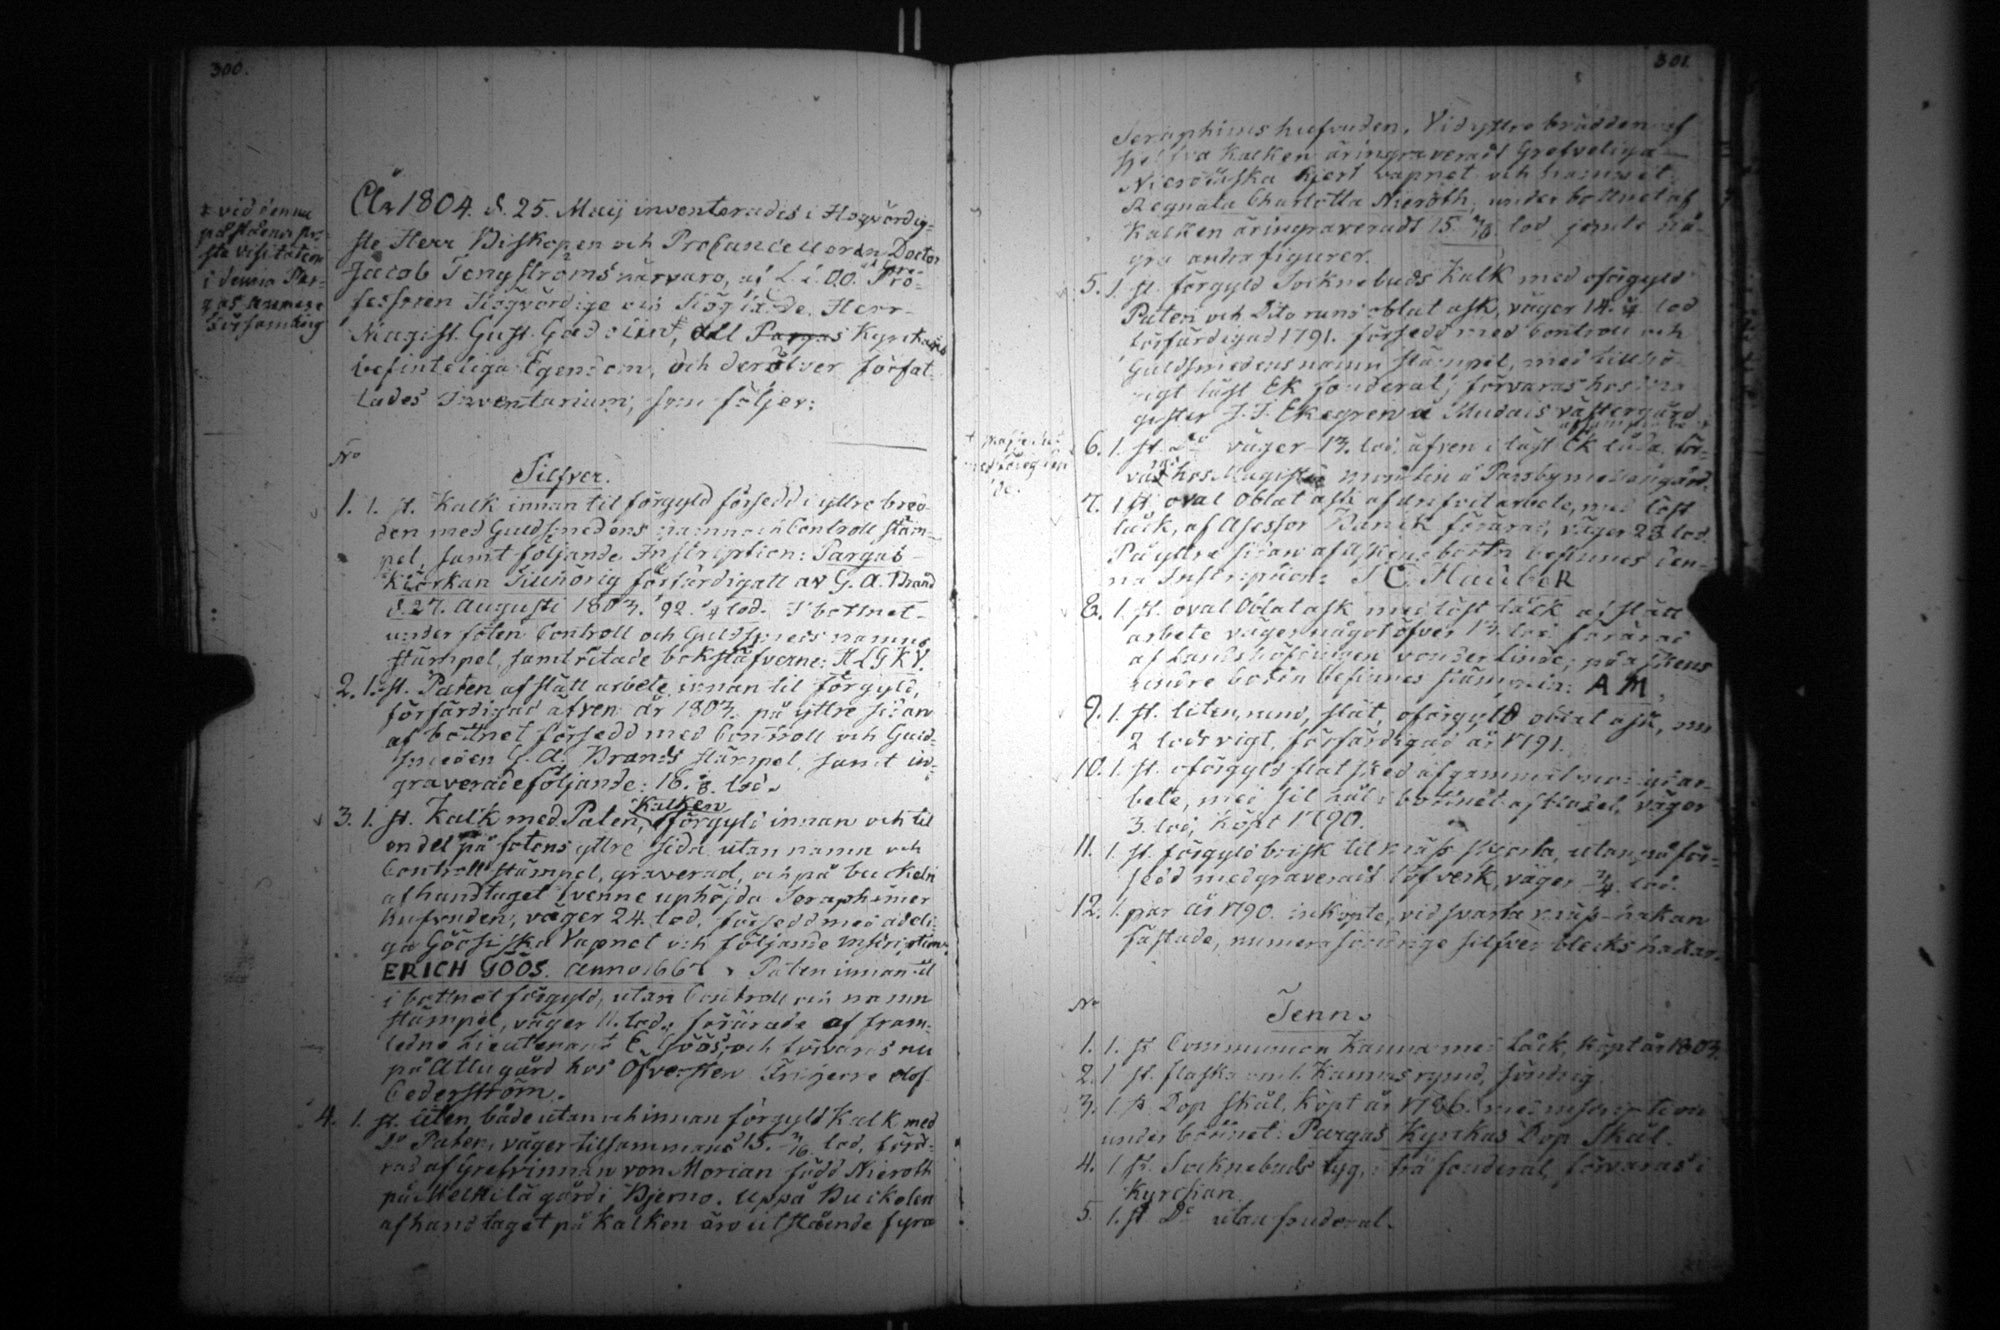 300.
År 1804. d. 25. Maij inventerades i Högvördig-
ste Herr Biskopen och Procancelloren, Doctor
Jacob Tengströms närvaro, af
fessoren Högvördige och Höglärde Herr
Magist. Gust. Gadolin, all Pargas Kyrkas
befinteliga Egendom, och deröfver förfat-
tades Inventarium, som följer:
± vid denna
i denna Par-
församling
No
Silfver.
1. 1. st. Kalk innan til förgyld försedd i yttre bred-
den med Guldsmedens namn och Controll stäm-
pel, samt följande Inskription: Pargas
Kiörkan Tillhörig förfärdigatt av G. A. Brand
d. 27. Augusti 1803. 92. ¼ lod. I bottnet
under foten Controll och Guldsmeds namns
stämpel, samt ritade bokstäfverne: A L G K V.
2. 1. st. Paten af slätt arbete innan til förgyld,
förfärdigad äfven år 1803. på yttre sidan
af bottnet försedd med Controll och Guld-
smeden G. A. Brands stämpel, samt in-
graverade följande: 16. /8. lod.
3. 1. st. Kalk med Paten, Kalken förgyld innan och til
en del på fotens yttre sida utan namn och
Controll stämpel, graverad, och på buckeln
af handtaget tvenne uphöjda Seraphimer
hufvuden, väger 24. lod, försedd med adeli-
ga Göösiska Vapnet och följande inscription:
ERICH GÖÖS. Anno 166 Paten innan til
i bottnet förgyld, utan Controll och namn
stämpel, väger 11. lod; förärade af fram-
ledne Lieutenant E. Göös, och förvaras nu
på Attu gård hos Öfversten Friherre Olof
Cederström.
4. 1. st. liten, både utan och innan förgyld Kalk med
Do Paten, väger tilsammans 15. /16 lod, förä-
rad af Grefvinnan von Morian född Nieroth
på Melkilä gård i Bjerno. Uppå Buckelen
af handtaget på Kalken äro utstående fyra
301.
Seraphims hufvuden. Vid yttre brädden af
sjelfva Kalken är ingraverad Grefveliga
Nierothska vapnet och namnet
Regnata Charlotta Nieroth, under bottnet af
Kalken är ingraveradt 15 /16 lod jemte nå-
gra andra figurer.
5. 1. st. förgyld Socknebuds Kalk med oförgyld
Paten och Dito rund oblat ask, väger 14. ¼ lod
förfärdigad 1791. försedd med Controll och
Guldsmedens namn stämpel, med tillhö-
rigt låst Ek fouderal; förvaras hos Ma-
gister J. J. Ekegren å Mudais västergård
med föregåen
de.
6. 1. st. do väger 13. lod, äfven i låst Ek låda för-
varas hos Magister å Parsby mellangård.
7. 1 st. oval Oblat ask af drifvit arbete, med löst
låck, af Asessor förärad, väger 28 lod.
På yttre sidan af askens botn befinnes den-
na Inskription: I C Hauber
8. 1. st. oval Oblat ask med löst låck af slätt
arbete väger något öfver 13. lod förärad
af Landshöfdingen von der Linde; på askens
botn befinnes stämpeln: A M.
9. 1. st. liten, rund, slät, oförgyld oblat ask, om
2 lods vigt, förfärdigad år 1791.
10. 1. st. oförgyld slat sked af gammalmodigt ar-
bete, med sil hål i bottnet af bladet, väger
3. lod, köpt 1790.
11. 1. st. förgyld brisk til skjorta, utan på för-
sedd med graverads löfverk, väger ¾ lod.
12. 1. par år 1790. inköpte, vid svarta hakan
fästade, numera silfver blecks hakar.
No
Tenn.
1. 1. st. Communion Kanna med låck, köpt år 1803.
2. 1 st. flaska om 1. Kannas rymd, söndrig.
3. 1. st. Dop Skål, köpt år 1786. med inscription
under bottnet: Pargas Kyrkas Dop Skål.
4. 1. st. Socknebuds tyg, i trä fouderal, förvaras i
Kyrckan.
5. 1. st. Do utan fouderal.